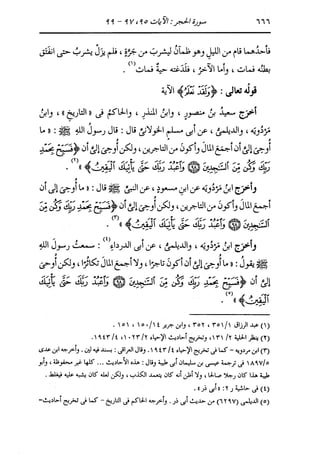 ٦٦٦ سورة الحجر : الآيات ٩٥، ٩٧ - ٩٩
فأحدهما قام من الليل وهو ظمآنُ ليشربَ من جَرَّةٍ ، فلم يزلْ يشربُ حتى انفتَق
بطنُه فمات ، وأما الآخرُ ، فلدَغته حيةٌ فمات(١) .
قولُه تعالى : ﴿ وَلَقَدْ نَعْلَمُ ﴾ الآية
أخرَج سعيدُ بنُ منصورٍ ، وابنُ المنذرِ ، والحاكمُ في « التاريخِ » ، وابنُ
مَرْدُويَه ، والديلميُّ ، عن أبي مسلمٍ الخولانيِّ قال : قال رسولُ اللهِ ﷺ : « ما
أُوحِيَ إليَّ أن أجمَعَ المالَ وأكونَ من التاجرينَ ، ولكن أُوحِيَ إليَّ أن ﴿ فَسَبِّحْ بِحَمْدِ
رَبِّكَ وَكُن مِّنَ السَّاجِدِينَ ﴿٩٨﴾ وَاعْبُدْ رَبَّكَ حَتَّى يَأْتِيَكَ الْيَقِينُ ﴾ »(٢) .
وأخرَج ابنُ مَرْدُويَه عن ابنِ مسعودٍ ، عن النبيِّ ﷺ قال : « ما أُوحِيَ إليَّ أن
أجمعَ المالَ وأكونَ من التاجرينَ ، ولكن أُوحِيَ إليَّ أن ﴿ فَسَبِّحْ بِحَمْدِ رَبِّكَ وَكُن مِّنَ
السَّاجِدِينَ ﴿٩٨﴾ وَاعْبُدْ رَبَّكَ حَتَّى يَأْتِيَكَ الْيَقِينُ ﴾ »(٣) .
وأخرَج ابنُ مَرْدُويَه ، والديلميُّ ، عن أبي الدرداءِ(٤) : سمعتُ رسولَ اللهِ
ﷺ يقولُ : « ما أُوحِيَ إليَّ أن أكونَ تاجرًا ، ولا أجمعَ المالَ تكاثُرًا ، ولكن أُوحِيَ
إليَّ أن ﴿ فَسَبِّحْ بِحَمْدِ رَبِّكَ وَكُن مِّنَ السَّاجِدِينَ ﴿٩٨﴾ وَاعْبُدْ رَبَّكَ حَتَّى يَأْتِيَكَ
الْيَقِينُ ﴾ »(٥) .
(١) عبد الرزاق ٣٥١/١، ٣٥٢ ، وابن جرير ١٥٠/١٤ ، ١٥١ .
(٢) ينظر الحلية ١٣١/٢ ، وتخريج أحاديث الإحياء ١٠٢٣/٢ ، ١٩٤٣/٤ .
(٣) ابن مردويه - كما في تخريج الإحياء ١٩٤٣/٤ . وقال العراقي : بسند فيه لين . وأخرجه ابن عدى
١٨٩٧/٥ في ترجمة عيسى بن سليمان أبي طيبة وقال : هذه الأحاديث ... كلها غير محفوظة ، وأبو
طيبة هذا كان رجلا صالحا ، ولا أظن أنه كان يتعمد الكذب ، ولكن لعله كان يشبه عليه فيغلط .
(٤) في حاشية ر ٢ : « أبي ذر » .
(٥) الديلمي (٦٢٩٧) من حديث أبي ذر . وأخرجه الحاكم في التاريخ - كما في تخريج أحاديث =